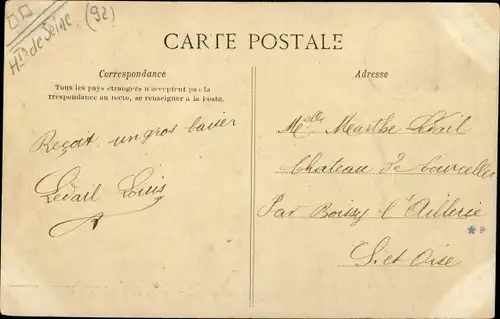 Hts de Seine (92)
CARTE POSTALE
Correspondance
Tous les pays étrangers n'acceptent pas la
rrespondance au recto, se renseigner à la Poste.
Reçoit un gros baiser
Ledail Louis
Adresse
Melle Marthe Ledail
Chateau de Courcelles
Par Boissy l'Aillerie
S. et Oise